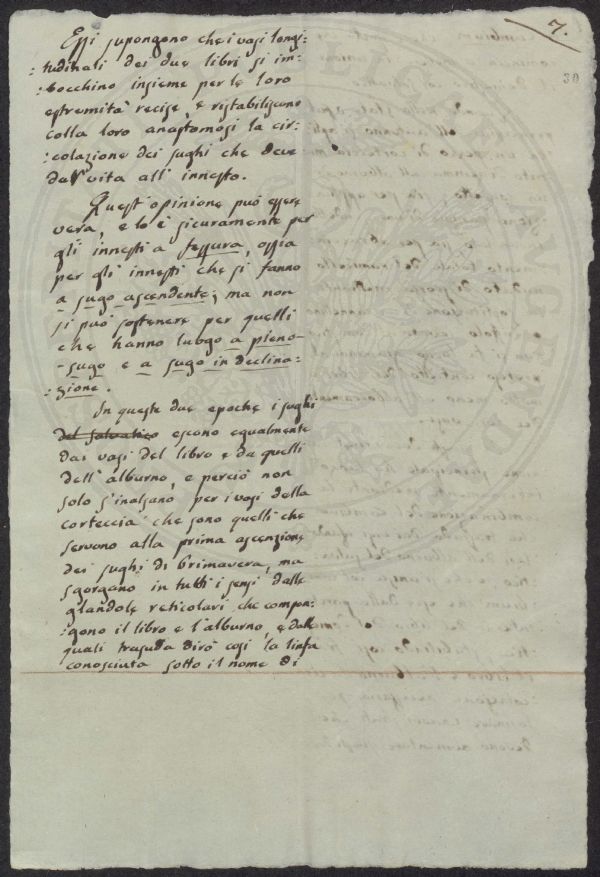 7.
30
Essi supongono che i vasi longi:
:tudinali dei due libri si im:
:bocchino insieme per le loro
estremità recise, e ristabiliscono
colla loro anastomosi la cir:
:colazione dei sughi che deve
dar vita all' innesto.
Quest' opinione può essere
vera, e lo è sicuramente per
gli innesti a fessura, ossia
per gli innesti che si fanno
a sugo ascendente; ma non
si può sostenere per quelli
che hanno luogo a pieno-
-sugo e a sugo in declina:
:zione.
In queste due epoche i sughi
del salvatico escono egualmente
dai vasi del libro e da quelli
dell' alburno, e perciò non
solo s'inalzano per i vasi della
corteccia che sono quelli che
servono alla prima ascenzione
dei sughi di Primavera, ma
sgorgano in tutti i sensi dalle
glandole reticolari che compon:
:gono il libro e l'alburno, e dalle
quali trasuda dirò così la linfa
conosciuta sotto il nome di